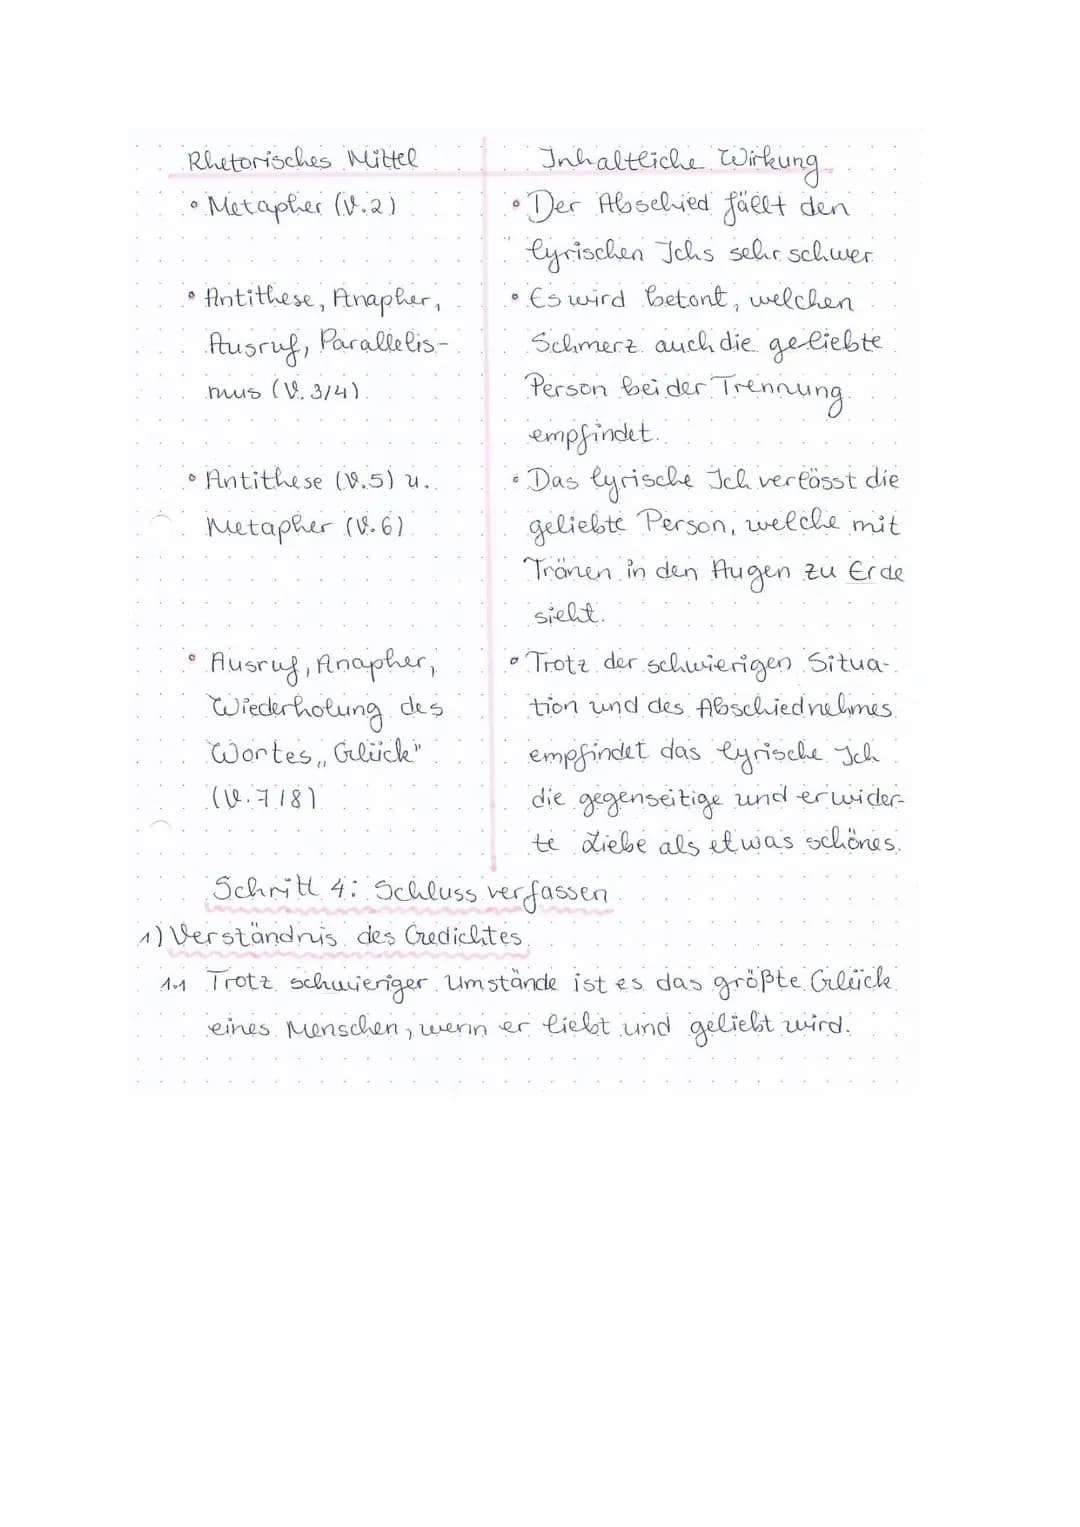 Rhetorisches Mittel
Inhaltliche Wirkung
• Metapher (V.2)
• Der Abschied fällt den
lyrischen Ichs sehr schwer
• Antithese, Anapher,
Ausruf, Parallelis-
mus (V. 3/4)
• Es wird betont, welchen
Schmerz auch die geliebte
Person bei der Trennung
empfindet.
• Antithese (V.5) u.
Metapher (V.6)
• Das lyrische Ich verlässt die
geliebte Person, welche mit
Tränen in den Augen zu Erde
sieht.
• Ausruf, Anapher,
Wiederholung des
Wortes „Glück"
(V.7/8)
• Trotz der schwierigen Situa-
tion und des Abschiednehmes
empfindet das lyrische Ich
die gegenseitige und erwider-
te Liebe als etwas schönes.
Schritt 4: Schluss verfassen
1) Verständnis des Gedichtes
1.1 Trotz schwieriger Umstände ist es das größte Glück
eines Menschen, wenn er liebt und geliebt wird.